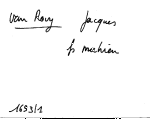 Van Rouy Jacques
fs Mathieu
1693/1